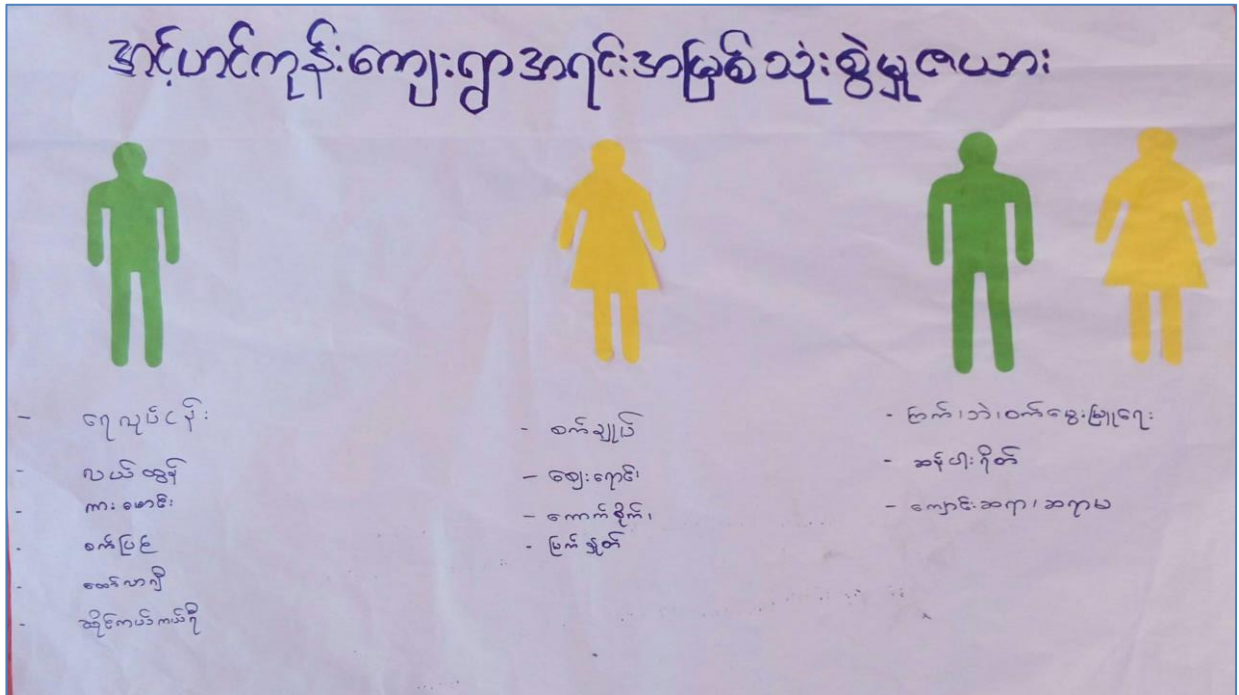 အင့်ဟင်ကုန်းကျေးရွာအရင်းအမြစ်သုံးစွဲမှုဇယား
- ရေလုပ်ငန်း
- လယ်ထွန်
- ကားမောင်း
- စက်ပြင်
- ထော်လာဂျီ
- ဆိုင်ကယ်ကယ်ရီ
- စက်ချုပ်
- ဈေးရောင်း
- ကောက်စိုက်၊
- မြက်နှုတ်
- ကြက်၊ဘဲ၊ဝက်မွေးမြူရေး
- ဆန်ပါးရိတ်
- ကျောင်းဆရာ၊ဆရာမ